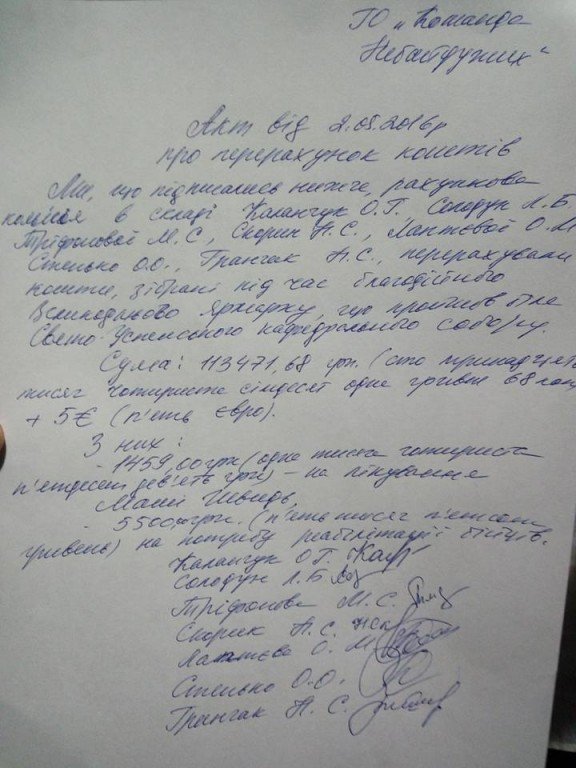 ГО "Команда
Небайдужих"
Акт від 2.05.2016р
про перерахунок коштів
Ми, що підписались нижче, рахункова
комісія в складі Каланчук О.Г, Солодун Л.Б,
Тріфонової М.С, Скорик Н.С., Лаптєвої О.М
Стенько О.О., Гранчак Н.С., перерахували
кошти, зібрані під час благодійного
Великоднього ярмарку, що пройшов біля
Свято-Успенського кафедрального собору.
Сума: 113471,68 грн. (сто тринадцять
тисяч чотириста сімдесят одна гривня 68 коп
+ 5€ (п'ять євро).
З них:
- 1459,00грн (одна тисяча чотириста
п'ятдесят дев'ять грн) – на лікування
Маші
5500грн. (п'ять тисяч п'ятсот
гривень) на потребу реабілітації бійців.
Каланчук О.Г.
Солодун Л.Б
Тріфонова М.С.
Скорик Н.С.
Лаптєва О.М
Стенько О.О.
Гранчак Н.С.